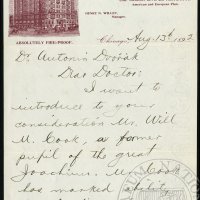 American and European Plan.
HENRY N. WILLEY,
Manager.
ABSOLUTELY FIRE-PROOF.
Chicago, Aug. 13th 1892
Dr. Antonin Dvořák
Dear Doctor:
I want to
introduce to your
consideration Mr. Will
M. Cook, a former
pupil of the great
Joachim. Mr. Cook
has marked ability